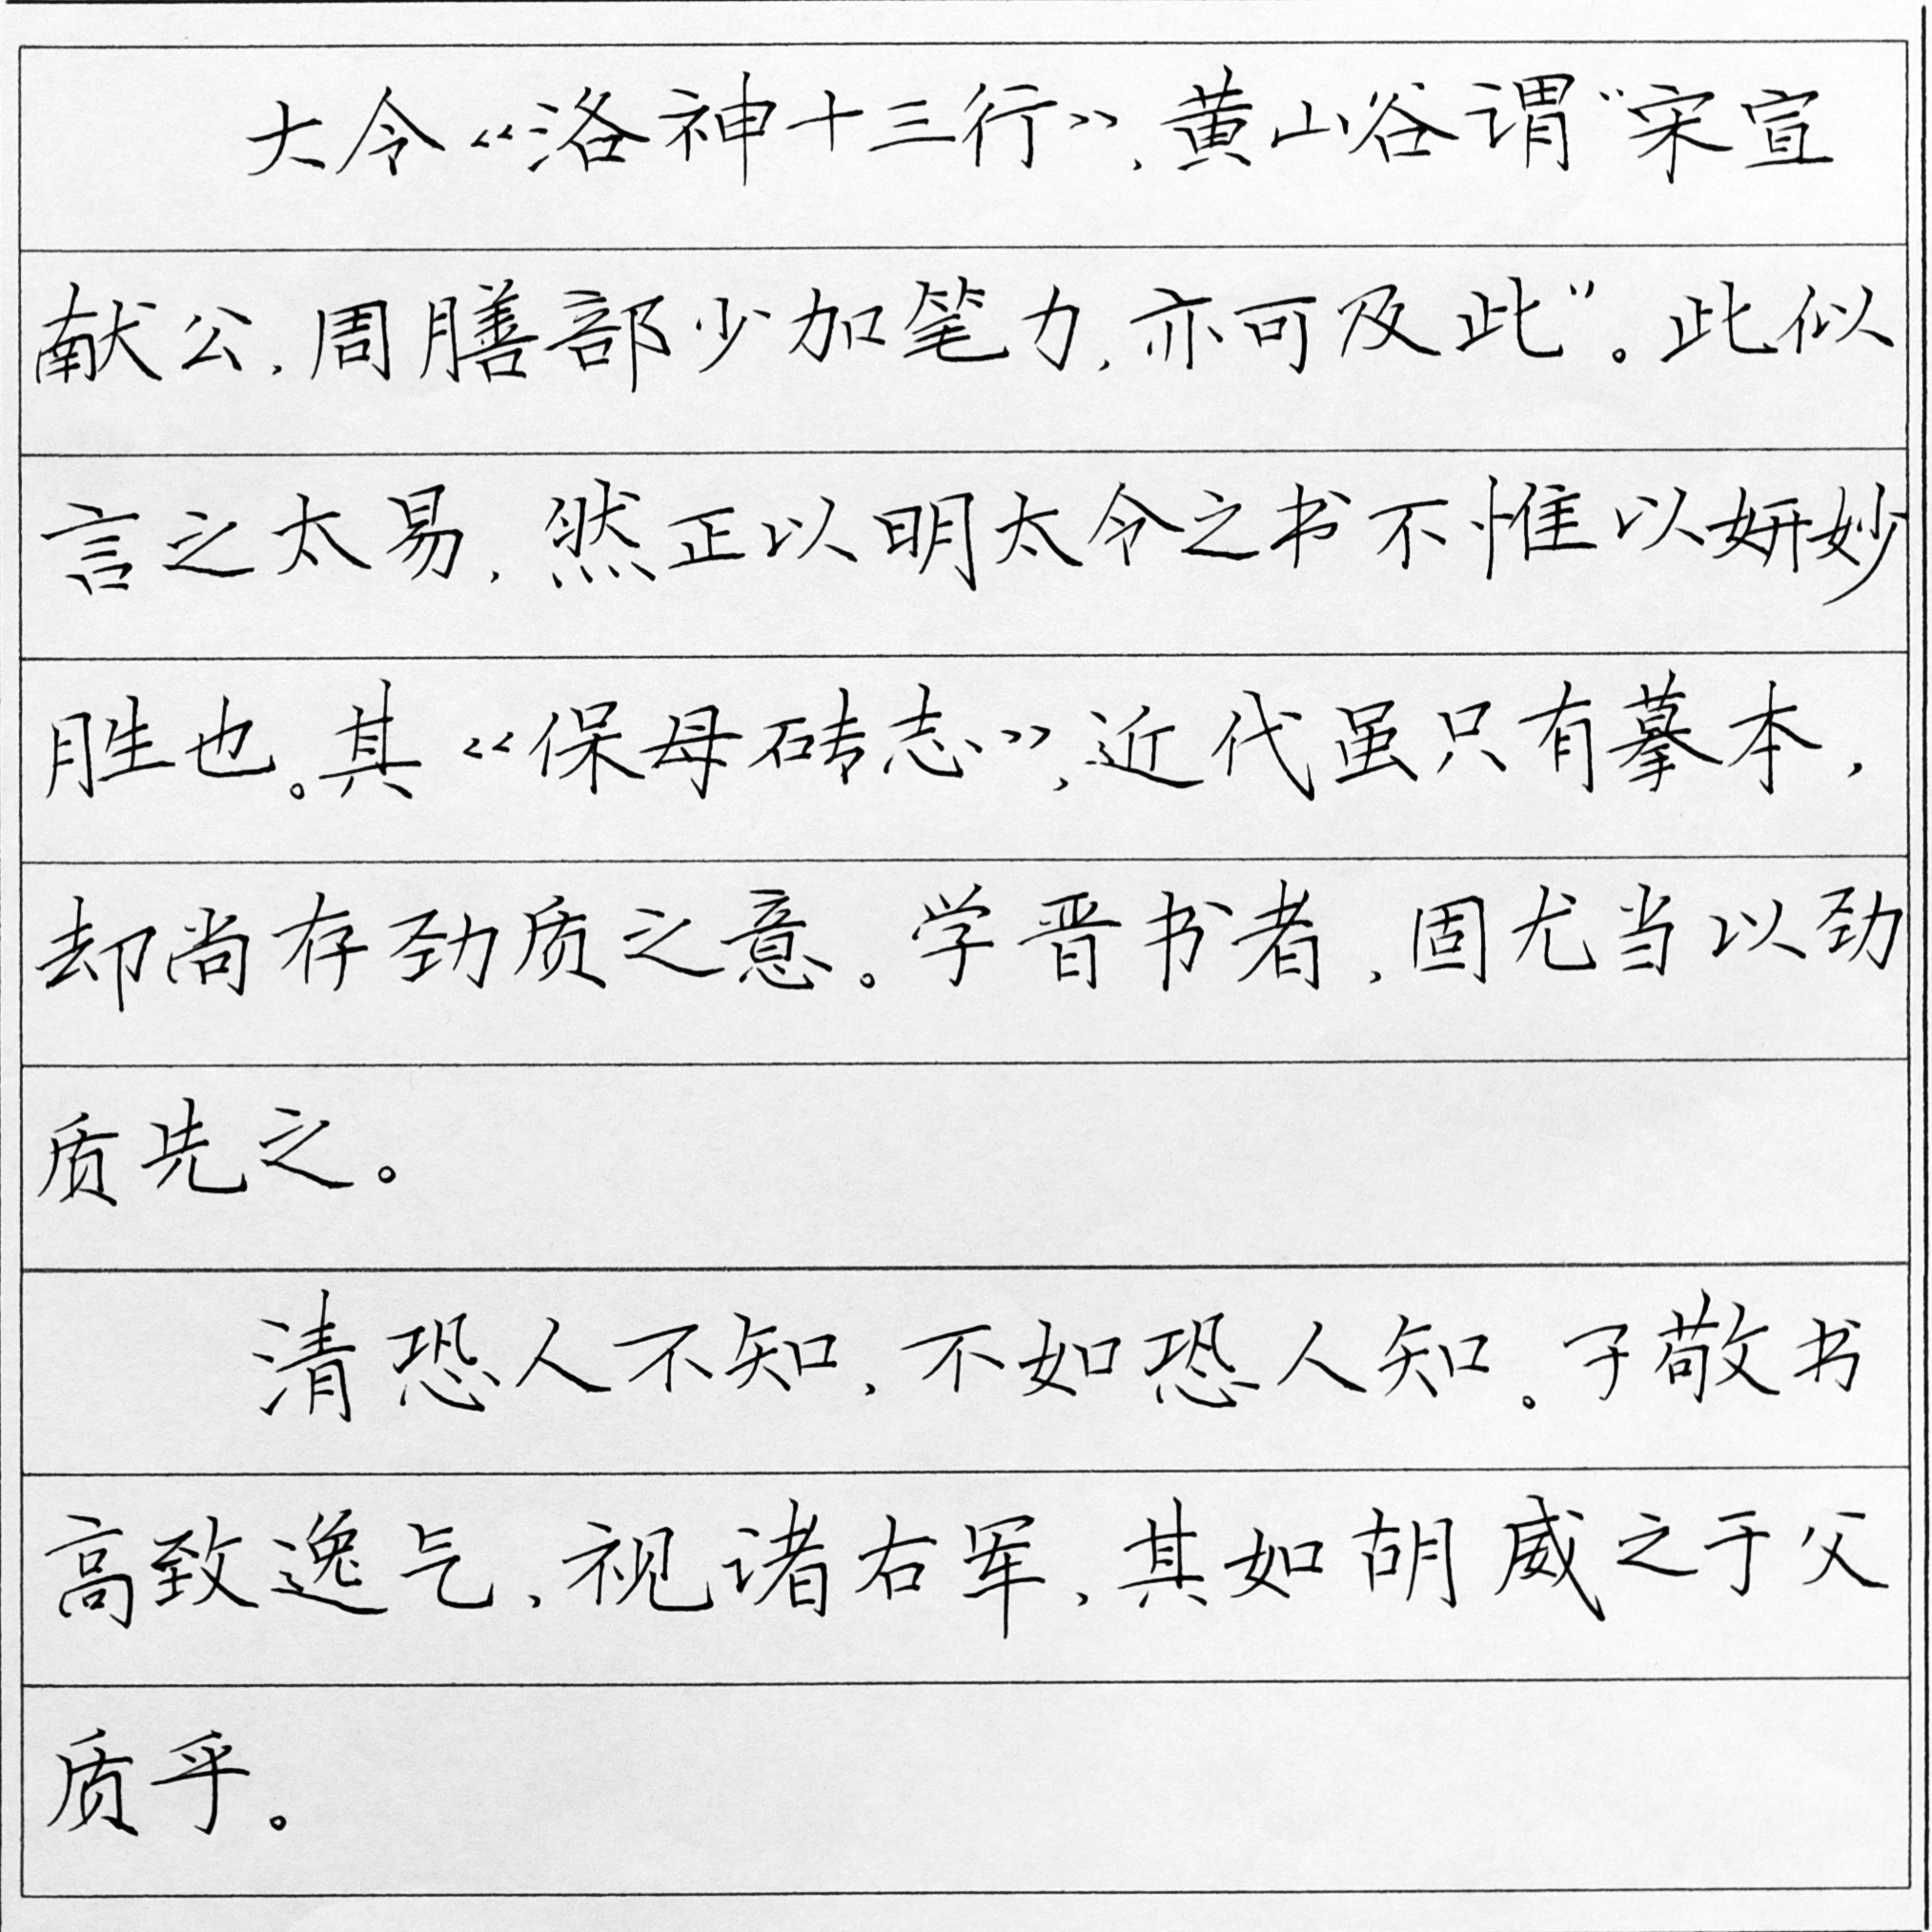 大令《洛神十三行》,黄山谷谓“宋宣
献公,周膳部少加笔力,亦可及此”。此似
言之太易,然正以明太令之书不惟以妍妙
胜也。其《保母砖志》,近代虽只有摹本,
却尚存劲质之意。学晋书者,固尤当以劲
质先之。
清恐人不知,不如恐人知。子敬书
高致逸气,视诸右军,其如胡威之于父
质乎。